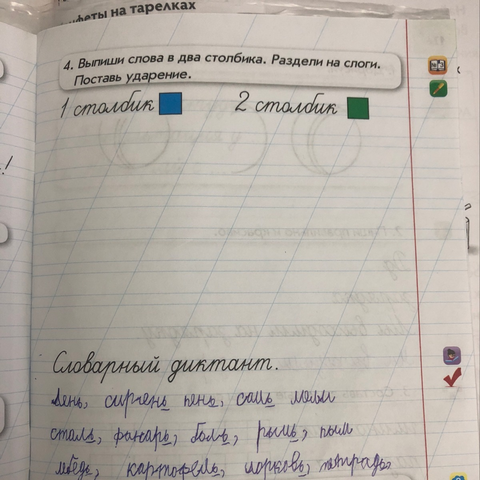 нфеты на тарелках
4. Выпиши слова в два столбика. Раздели на слоги.
Поставь ударение.
1 столбик 2 столбик
Словарный диктант.
День, сирень пень, соль моли
сталь, фонарь, боль, рысь, пыл
картофель, морковь, тетрадь